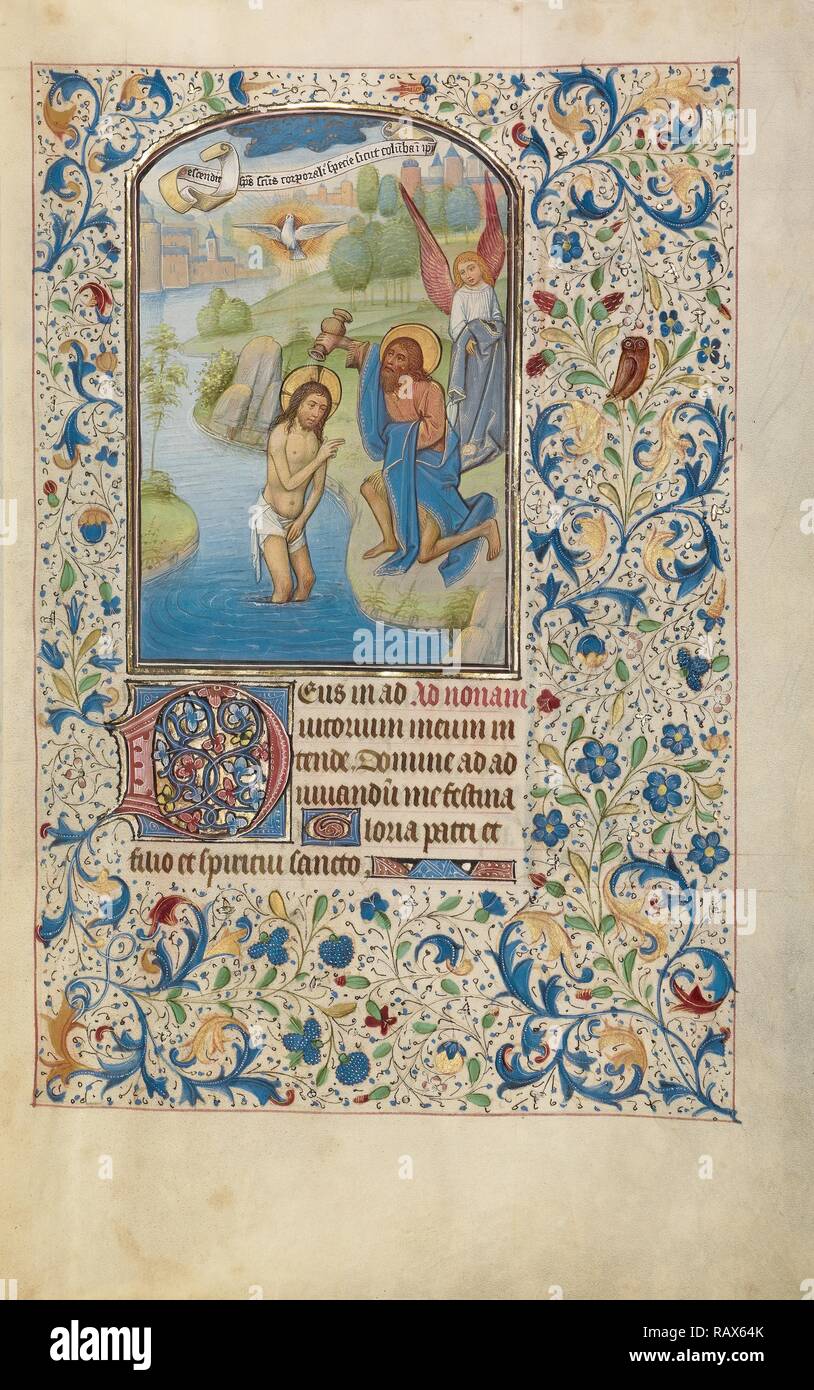 escendit sps scūs corporeli specie sicut colūba i ipm
Deus in ad Ad nonam
iutorium meum in
tende. Domine ad ad
iuuandū me festina
Gloria patri et
filio et spiritui sancto
alamy
Image ID: RAX64K
www.alamy.com